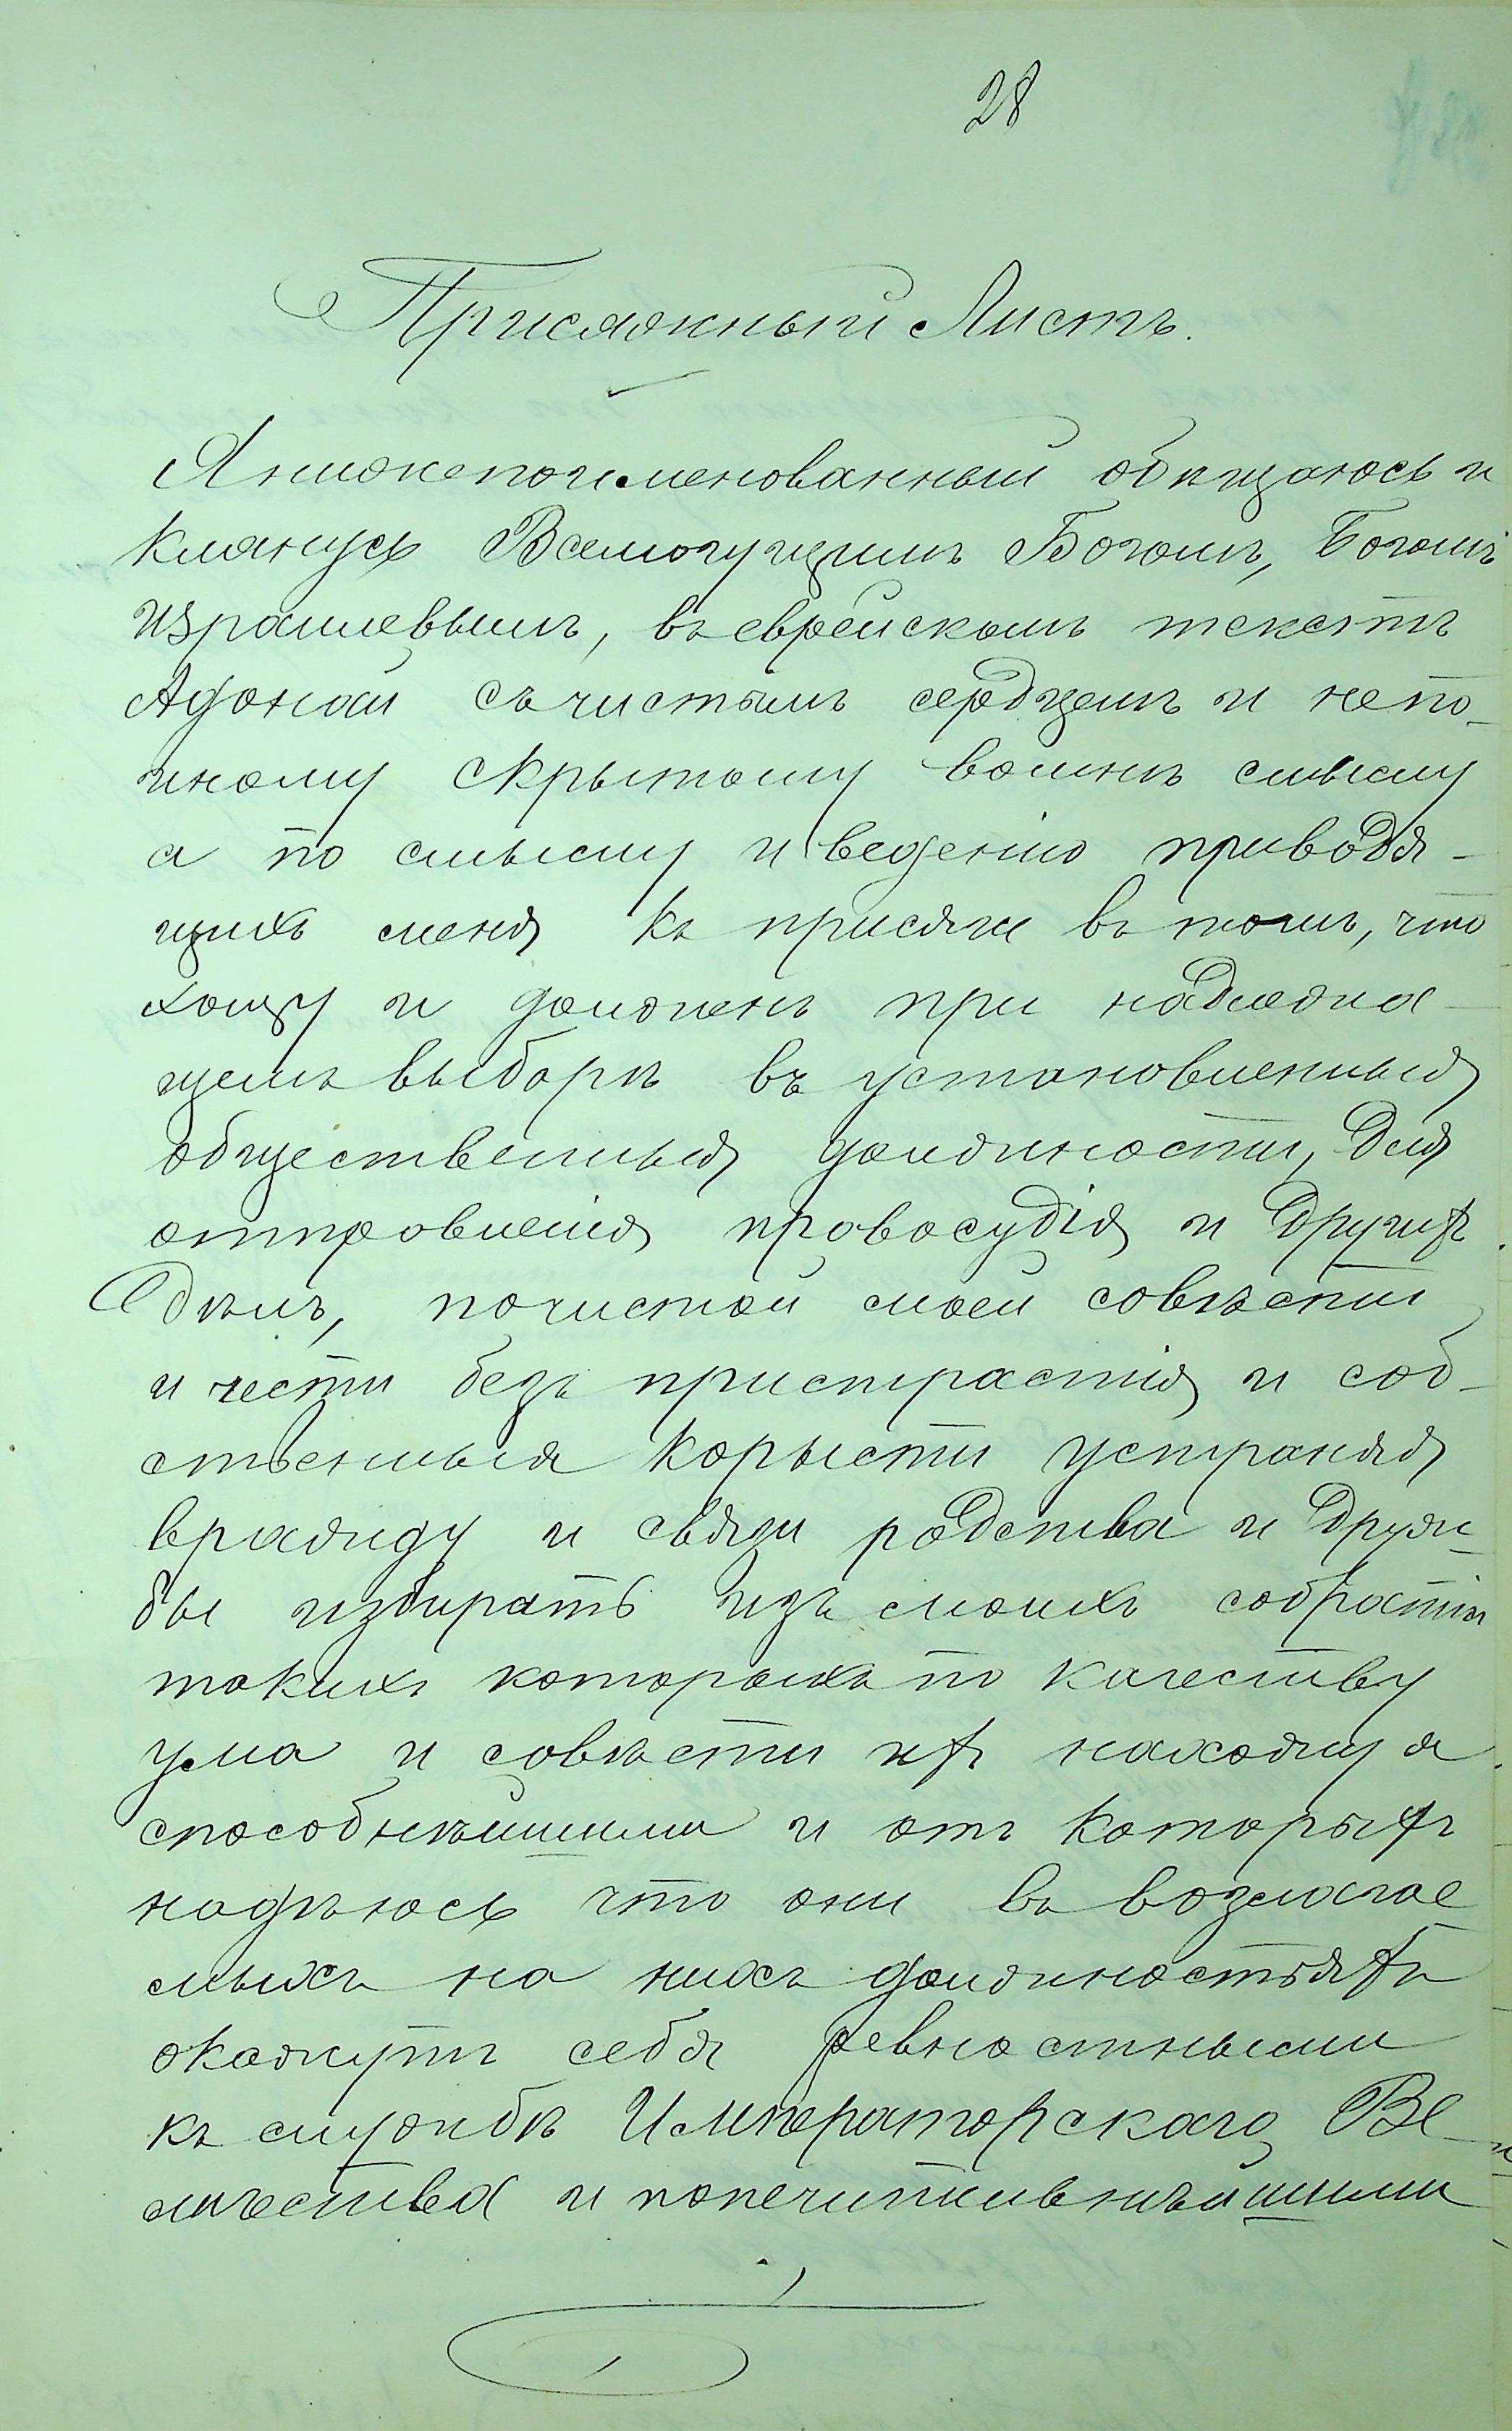 28
Присяжный Листъ.
Я нижепоименованный обѣщаюсь и
клянусь Всемогущимъ Богомъ, Богомъ
Израилевымъ, въ еврейскомъ текстѣ
Адонай съ чистымъ сердцемъ и не по-
иному скрытому во мнѣ смыслу
а по смыслу и веденію приводя-
щихъ меня къ присягѣ въ томъ, что
хощу и долженъ при надлежа-
щемъ выборѣ въ установленныя
общественныя должности, для
отправленія правосудія и другихъ
дѣлъ, по чистой моей совѣсти
и чести безъ пристрастія и соб-
ственныя корысти устраняя
вражду и связи родства и друж-
бы избирать изъ моихъ собратій
такихъ которыхъ по качеству
ума и совѣсти ихъ нахожу я
способнѣйшими и отъ которыхъ
надѣюсь что они въ возлагае
мыхъ на нихъ должностяхъ
окажутъ себя ревностными
къ службѣ Императорскаго Ве-
личества и попечительнѣйшими